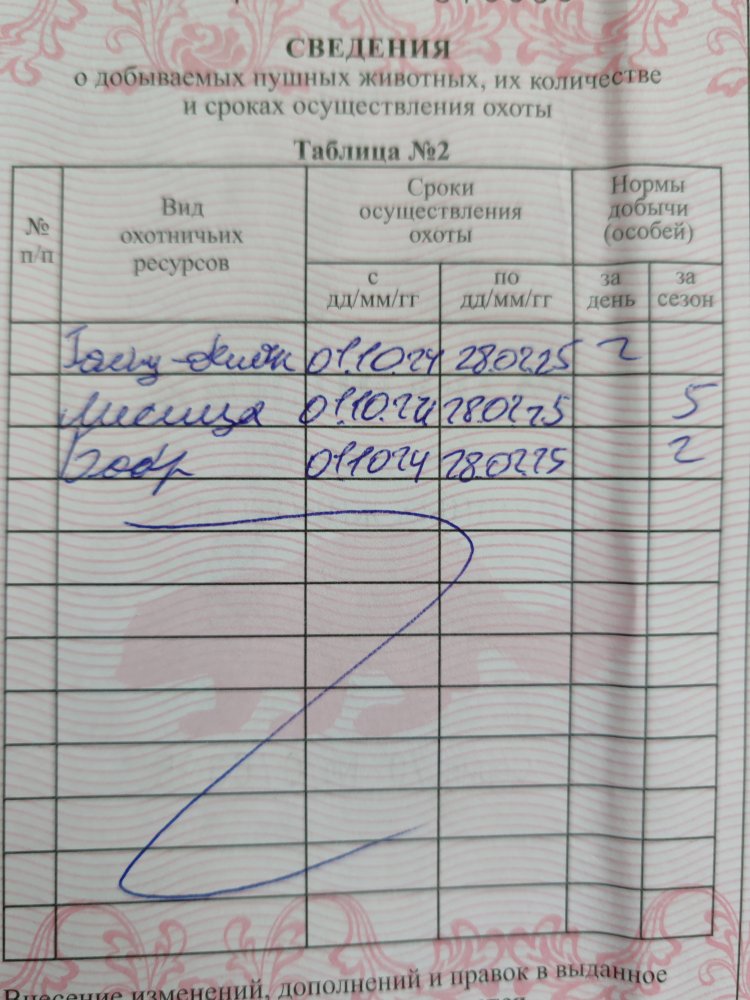 СВЕДЕНИЯ
о добываемых пушных животных, их количестве
и сроках осуществления охоты
Таблица №2
№ п/п
Вид охотничьих ресурсов
Сроки осуществления охоты
Нормы добычи (особей)
с дд/мм/гг
по дд/мм/гг
за день
за сезон
01.10.24 28.02.25 2
Лисица 01.10.24 28.02.25 5
Бобр 01.10.24 28.02.25 2
Внесение изменений, дополнений и правок в выданное